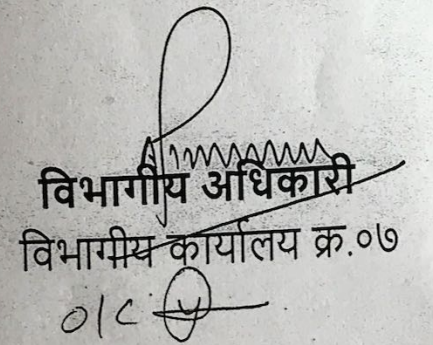 विभागीय अधिकारी
विभागीय कार्यालय क्र.०७
O/C